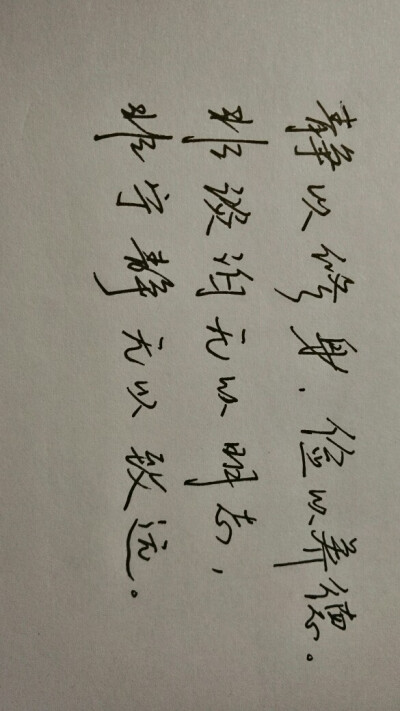 静以修身，俭以养德。
非淡泊无以明志，
非宁静无以致远。